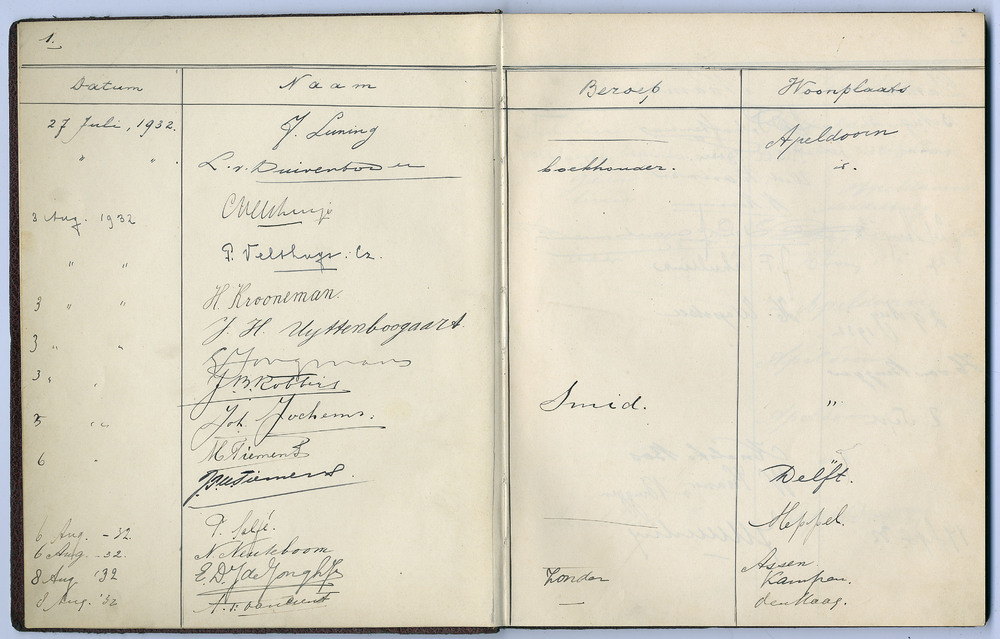 1.
Datum Naam Beroep Woonplaats
27 Juli, 1932. J. Luning Apeldoorn
" " . L. v. boekhouder. id.
3 Aug. 1932
" " P. Velthuys. Cz.
3 " " H. Krooneman.
3 " " J. H. Uyttenboogaart.
3 " " Jongmans
J. B. Robbers
5 " " Joh. Jochems. Smid. "
6 " M Tiemens
Tiemens. Delft.
6 Aug. -32. P. Meppel.
6 Aug. -32. N. Nieukboom Assen
8 Aug '32 E. D. J de Jongh Jr Zonder Kampen.
8 Aug. '32 — den Haag.